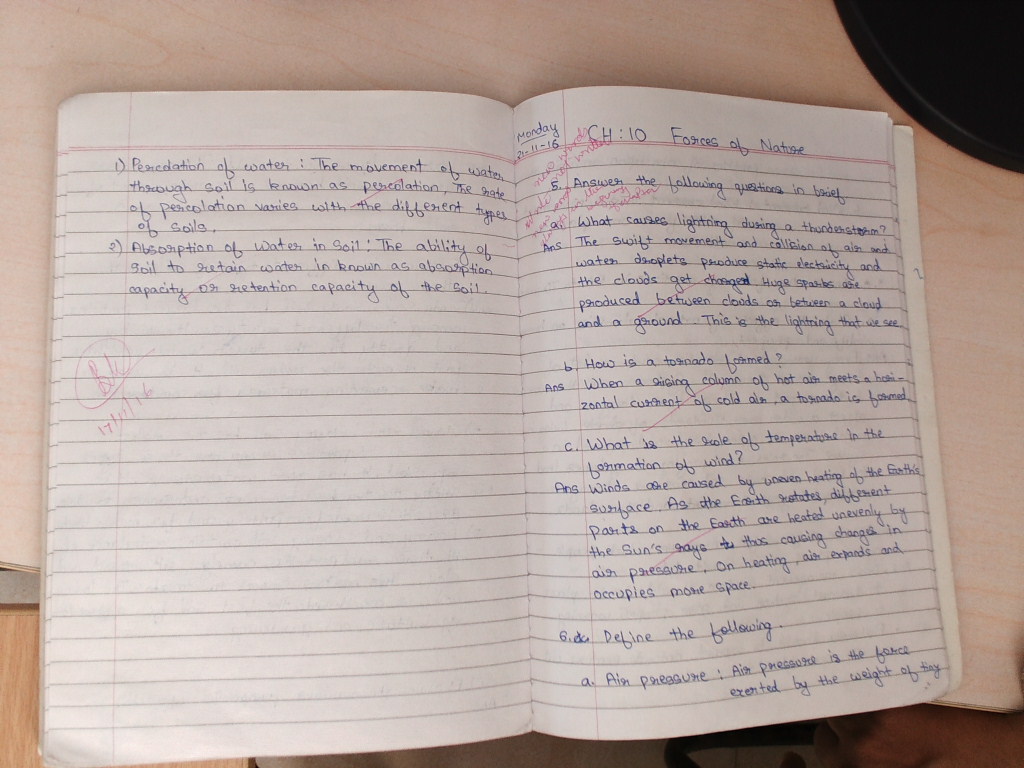 1) Percolation of water : The movement of water
through soil is known as percolation, The rate
of percolation varies with the different types
of soils.
2) Absorption of Water in Soil : The ability of
soil to retain water in known as absorption
capacity or retention capacity of the soil.
17/11/16
Monday
21-11-16
CH : 10 Forces of Nature
5. Answer the following questions in brief
a. What causes lightning during a thunderstorm?
Ans The swift movement and collision of air and
water droplets produce static electricity and
the clouds get charged Huge sparks are
produced between clouds or between a cloud
and a ground. This is the lightning that we see
b. How is a tornado formed?
Ans When a rising column of hot air meets a hori-
zontal current of cold air, a tornado is formed
c. What is the role of temperature in the
formation of wind?
Ans Winds are caused by uneven heating of the Earth's
surface. As the Earth rotates, different
parts on the Earth are heated unevenly by
the Sun's rays thus causing changes in
air pressure. On heating, air expands and
occupies more space.
6. Define the following.
a. Air pressure : Air pressure is the force
exerted by the weight of tiny